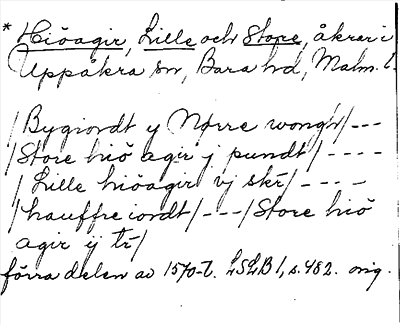 * Hiöagir, Lille och Store, åkrar i
Uppåkra sn, Bara hd, Malm. l.
/Bygiordt y Nørre wongh/---
/Store hiö agir j pundt/----
/Lille hiöagir vj skr/----
/hauffre iordt/---/Store hiö
agir ij tr/
förra delen av 1570-t. LSLB 1, s. 482. orig.